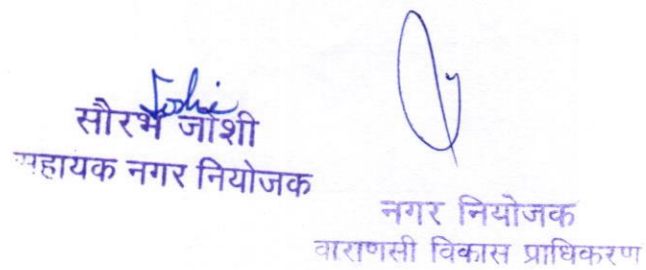 Joshi
सौरभ जोशी
सहायक नगर नियोजक
नगर नियोजक
वाराणसी विकास प्राधिकरण